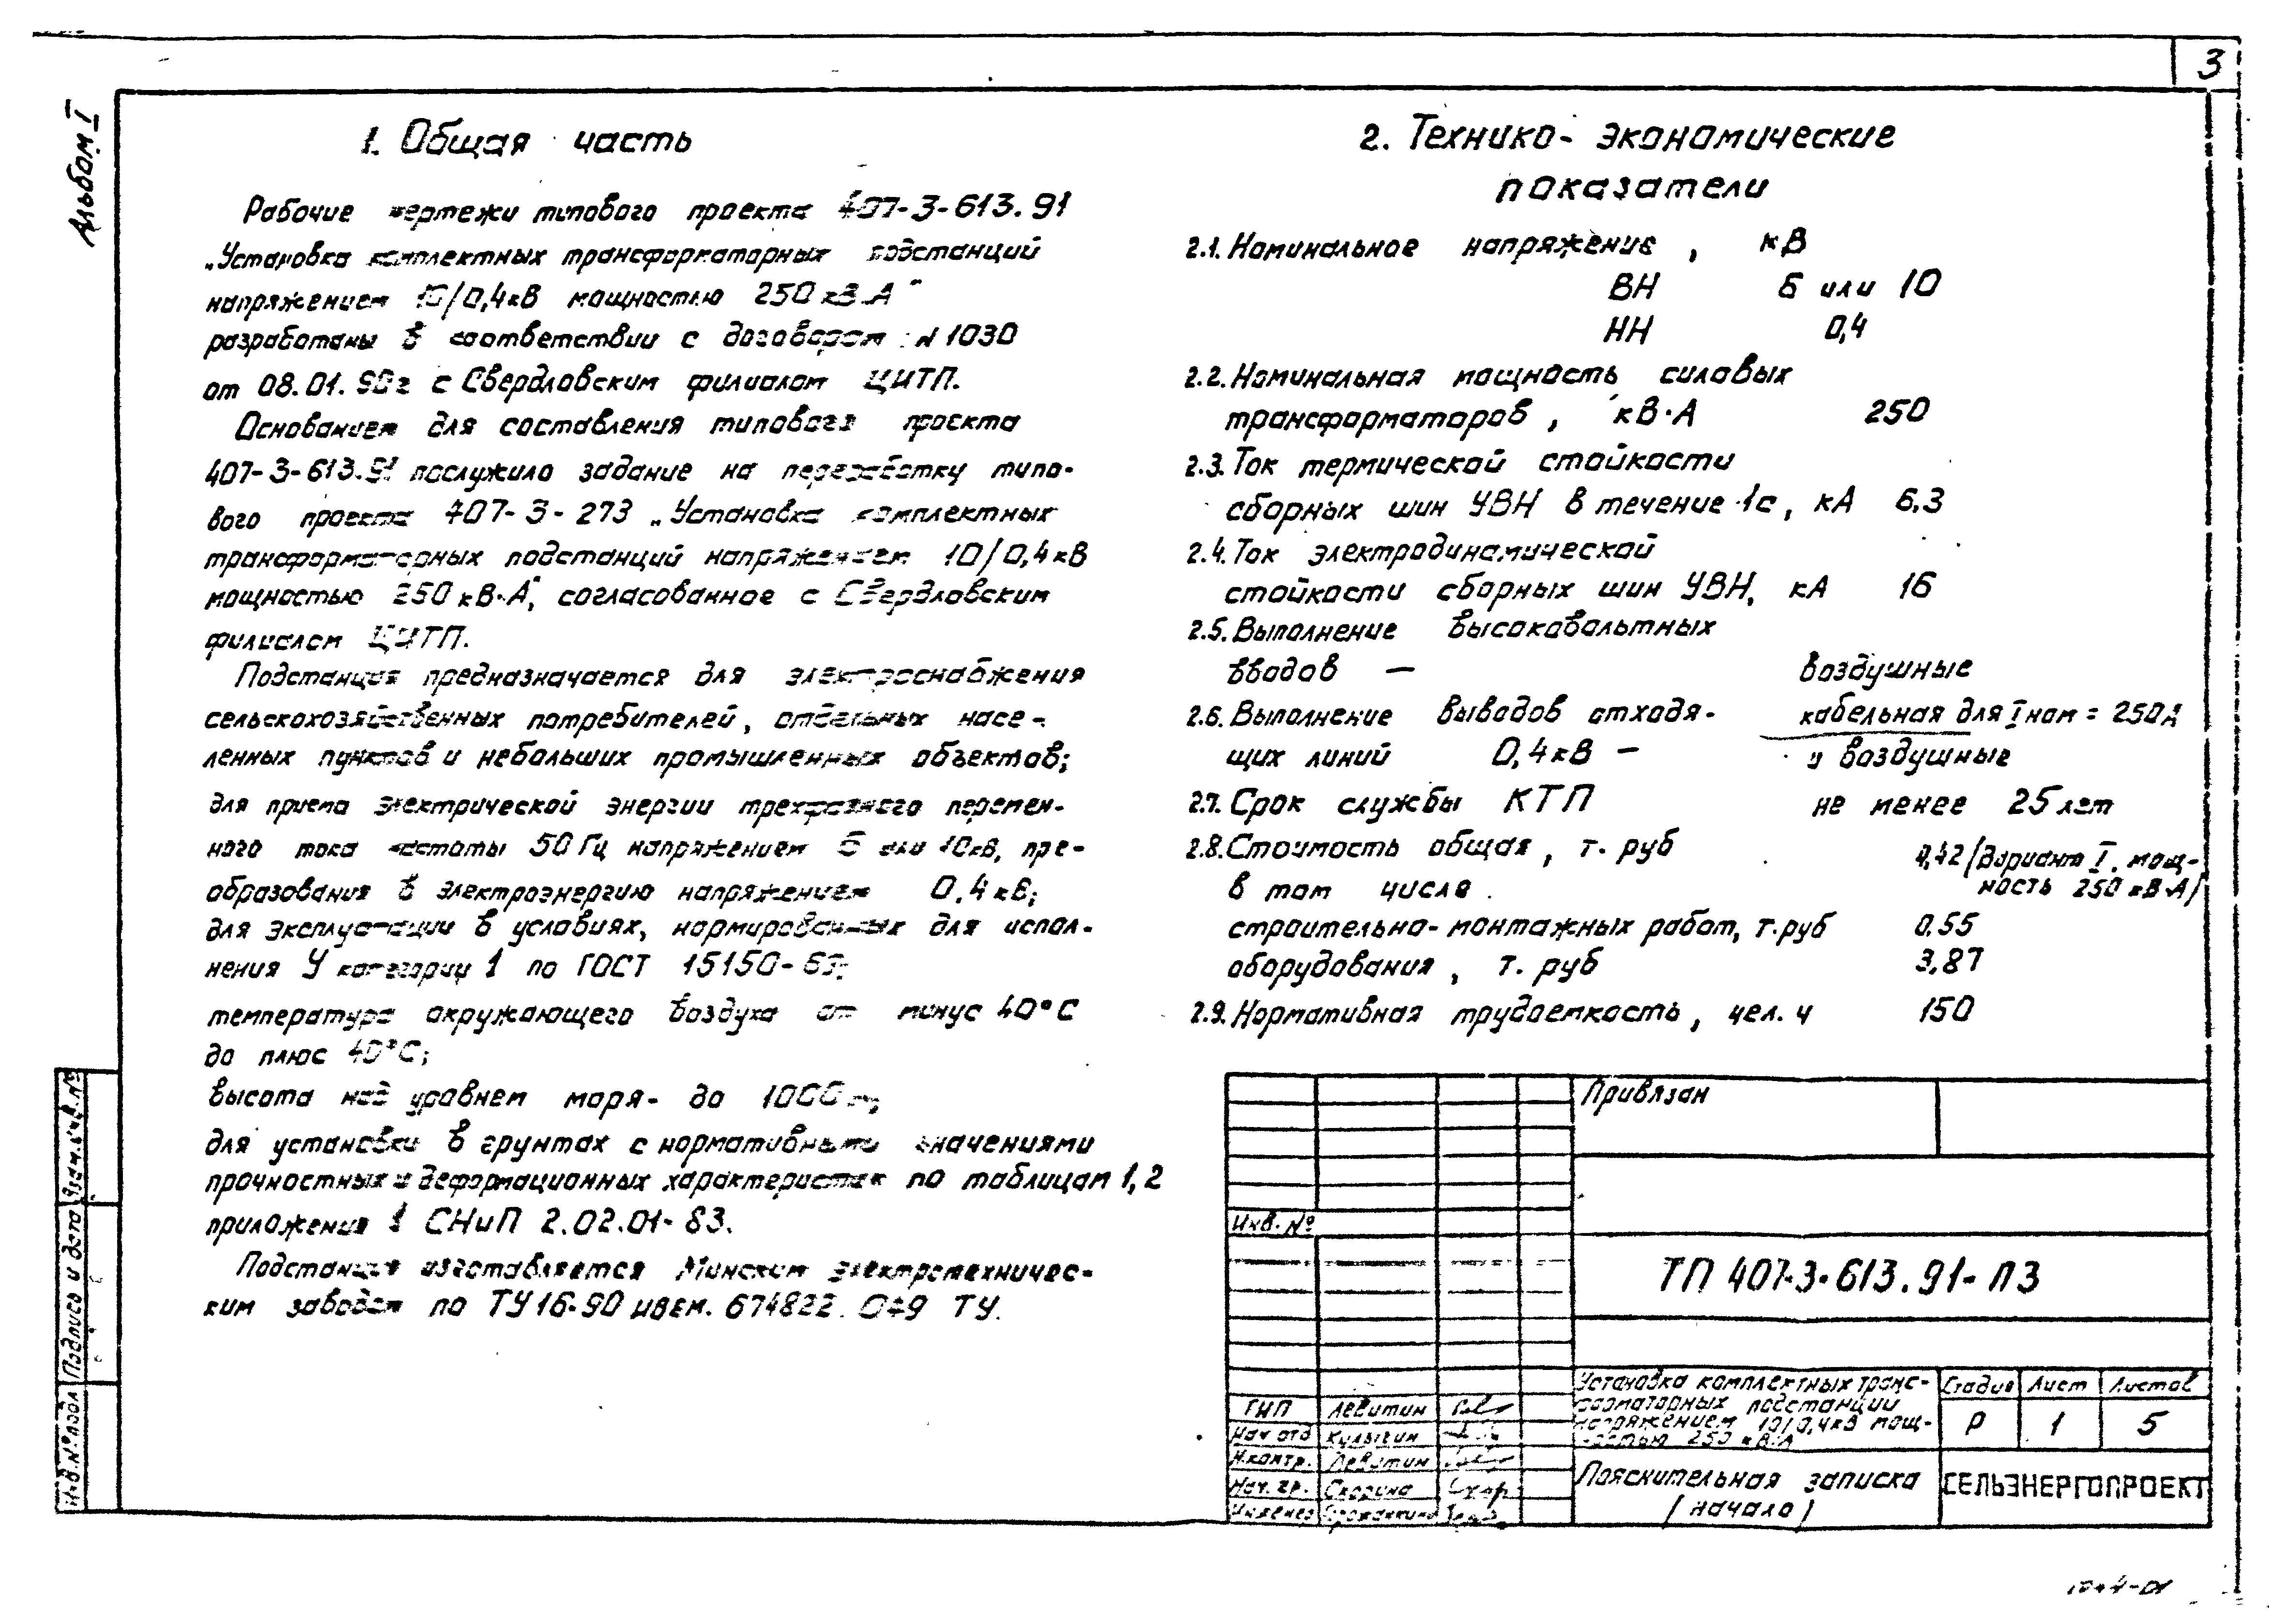 3
Альбом I
1. Общая часть
Рабочие чертежи типового проекта 407-3-613.91
„Установка комплектных трансформаторных подстанций
напряжением 10/0,4кВ мощностью 250 кВ.А"
разработаны в соответствии с договором N 1030
от 08.01.90г с Свердловским филиалом ЦИТП.
Основанием для составления типового проекта
407-3-613.91 послужило задание на переработку типо-
вого проекта 407-3-273 „Установка комплектных
трансформаторных подстанций напряжением 10/0,4кВ
мощностью 250 кВ·А", согласованное с Свердловским
филиалом ЦИТП.
Подстанция предназначается для электроснабжения
сельскохозяйственных потребителей, отдельных насе-
ленных пунктов и небольших промышленных объектов;
для приема электрической энергии трехфазного перемен-
ного тока частоты 50 Гц напряжением 6 или 10кВ, пре-
образования в электроэнергию напряжением 0,4 кВ;
для эксплуатации в условиях, нормированных для испол-
нения У категории 1 по ГОСТ 15150-69;
температура окружающего воздуха от минус 40°С
до плюс 40°С;
высота над уровнем моря- до 1000 м;
для установки в грунтах с нормативными значениями
прочностных и деформационных характеристик по таблицам 1,2
приложения 1 СНиП 2.02.01-83.
Подстанция изготавляется Минским электротехничес-
ким заводом по ТУ16-90 ИВЕМ. 674822. ТУ.
2. Технико-экономические
показатели
2.1. Номинальное напряжение, кВ
ВН 6 или 10
НН 0,4
2.2. Номинальная мощность силовых
трансформаторов, кВ·А 250
2.3. Ток термической стойкости
сборных шин УВН в течение 1с, кА 6,3
2.4. Ток электродинамической
стойкости сборных шин УВН, кА 16
2.5. Выполнение высоковольтных
вводов — воздушные
2.6. Выполнение выводов отходя- кабельная для Iном = 250А
щих линий 0,4кВ — и воздушные
2.7. Срок службы КТП не менее 25 лет
2.8. Стоимость общая, т. руб 4,42 /вариант I, мощ-
в том числе ность 250 кВ·А/
строительно-монтажных работ, т.руб 0,55
оборудования, т. руб 3,87
2.9. Нормативная трудоемкость, чел. ч 150
Привязан
Инв. №
ТП 407-3-613.91-ПЗ
Установка комплектных транс-
форматорных подстанций
напряжением 10/0,4кВ мощ-
ностью 250 кВ·А
Стадия Лист Листов
Р 1 5
ГИП Левитин
Нач отд Кулыгин
Н.контр. Левитин
Нач. гр. Скорина
Инженер
Пояснительная записка
(начало)
СЕЛЬЭНЕРГОПРОЕКТ
Инв.№подл Подпись и дата Взам.инв.№